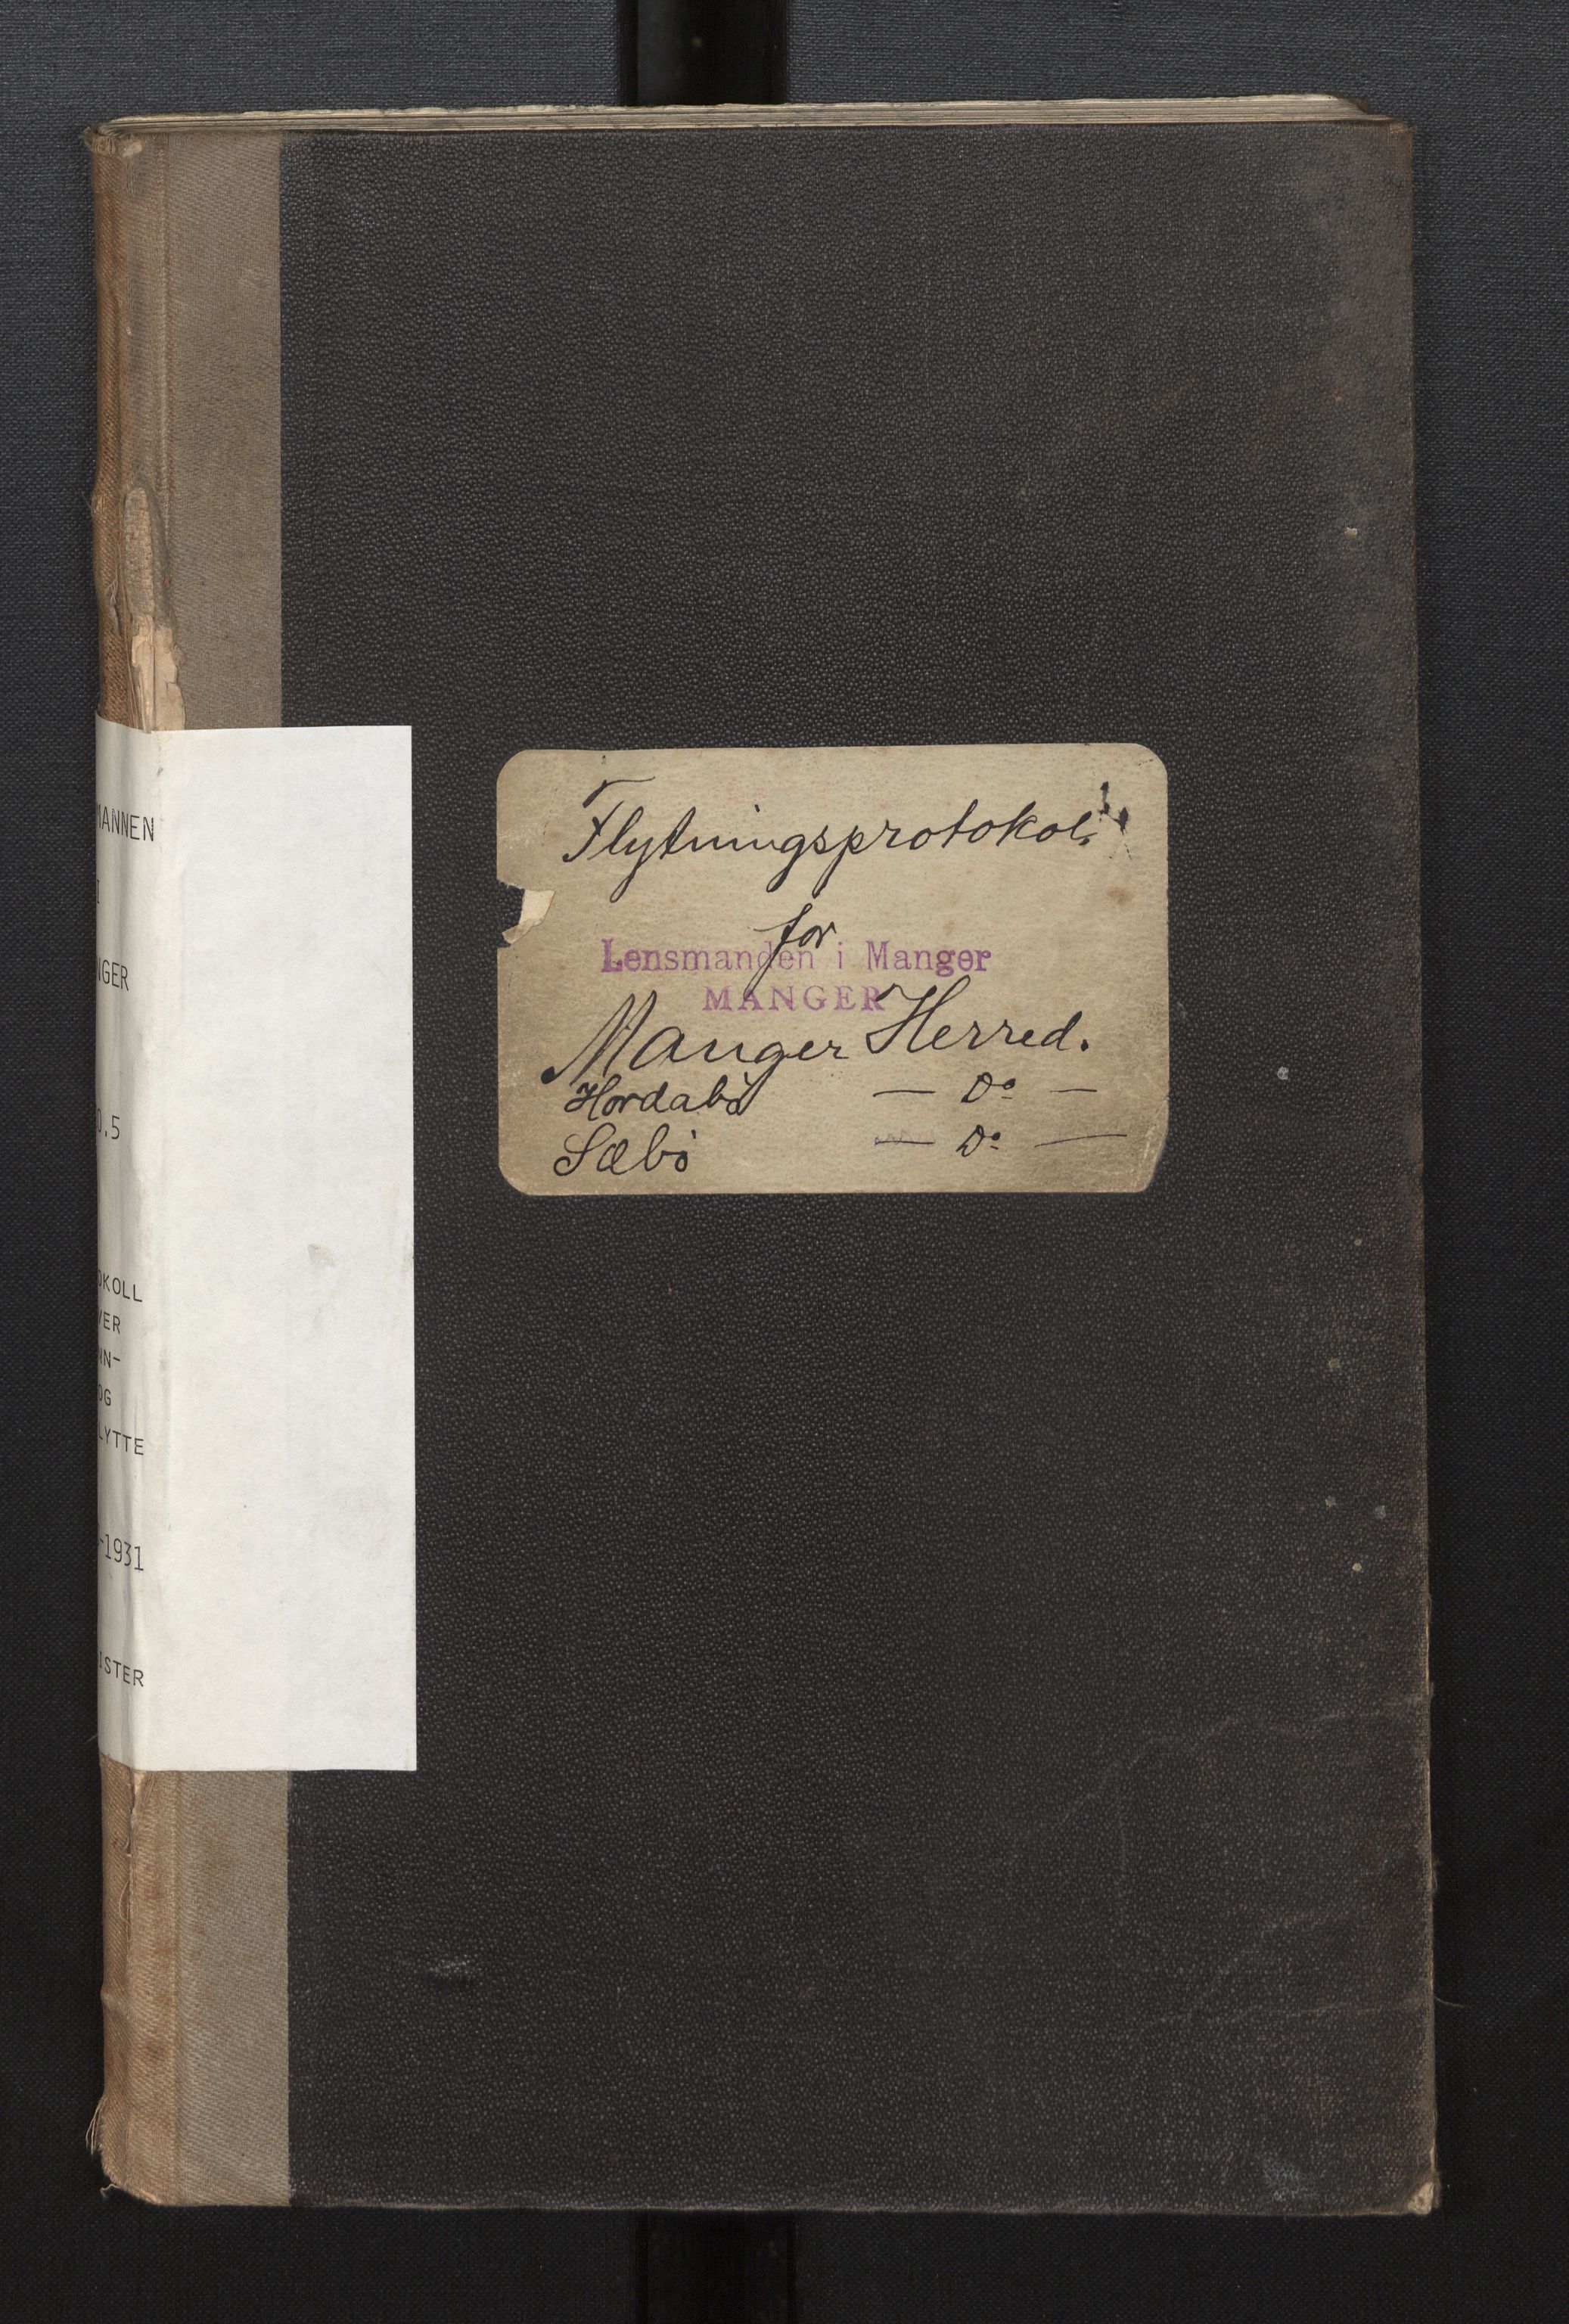 MANNEN
I
NGER
0.5
OKOLL
VER
NN-
OG
LYTTE
-1931
ISTER
Flytningsprotokol.
for
Lensmanden i Manger
MANGER
Manger Herred.
Hordabö — Do —
Sæbö — Do —